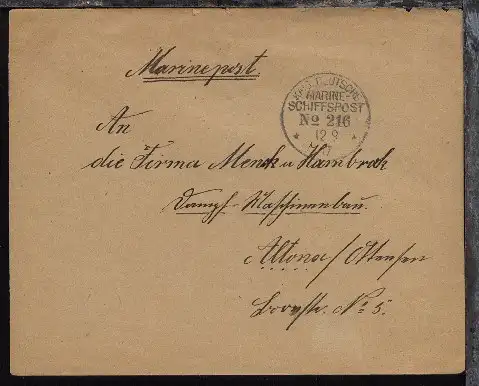 Marinepost.
KAIS. DEUTSCHE
MARINE-
SCHIFFSPOST
No 216
12 9
An
die Firma Menck u Hambrock
Dampf-Maschinenbau.
Altona/Ottensen
No 5.